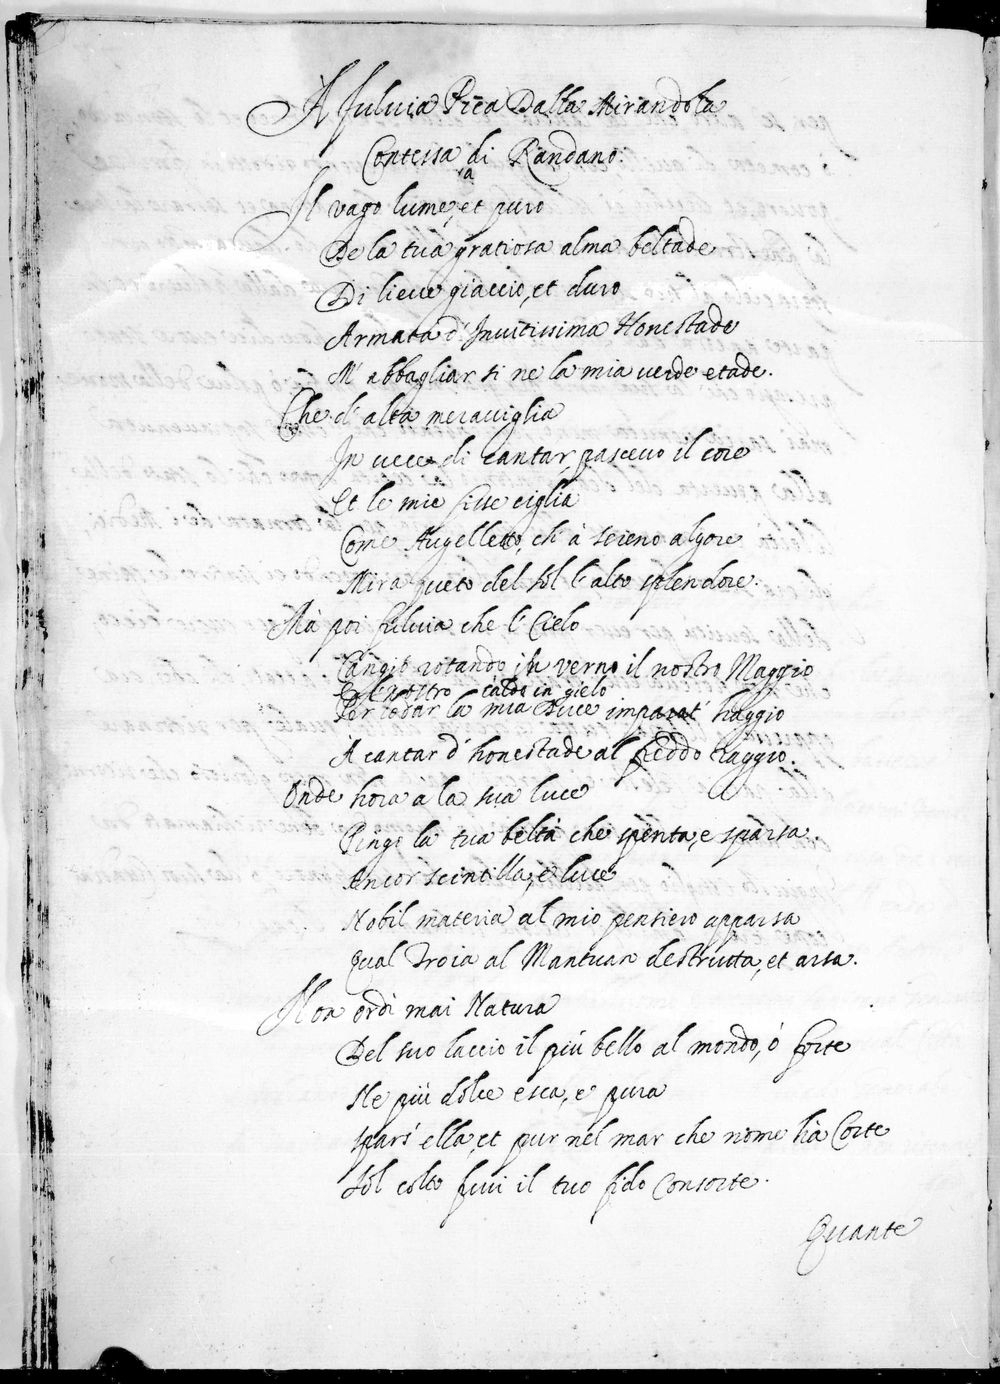 A Fulvia Pica Dalla Mirandola
Contessa di Randano:
sa
Il vago lume, et puro
De la tua gratiosa alma beltade
Di lieve giaccio, et duro
Armata d'Invitissima Honestade
M'abbagliar si ne la mia verde etade.
Che d'alta meraviglia
In vece di cantar, pascevo il core
Et le mie fisse ciglia
Come Augelletto, ch'à sereno algore
Mira queto del sol l'alto splendore.
Mà poi Fulvia che l'Cielo
Cangiò rotando in verno il nostro Maggio
E'l nostro caldo in gielo
Per lodar la mia Duce imparat'haggio
A cantar d'honestade al freddo raggio.
Onde hora à la sua luce
Pingo la tua beltà che spenta, e sparsa
Ancor scintilla, e luce
Nobil materia al mio pensiero apparsa
Qual Troia al Mantuan destrutta, et arsa.
Non ordì mai Natura
Del suo laccio il più bello al mondo, ò forte
Ne più dolce esca, e pura
Spars'ella, et pur nel mar che nome hà Corte
Sol colto fuui il tuo fido Consorte.
Quante